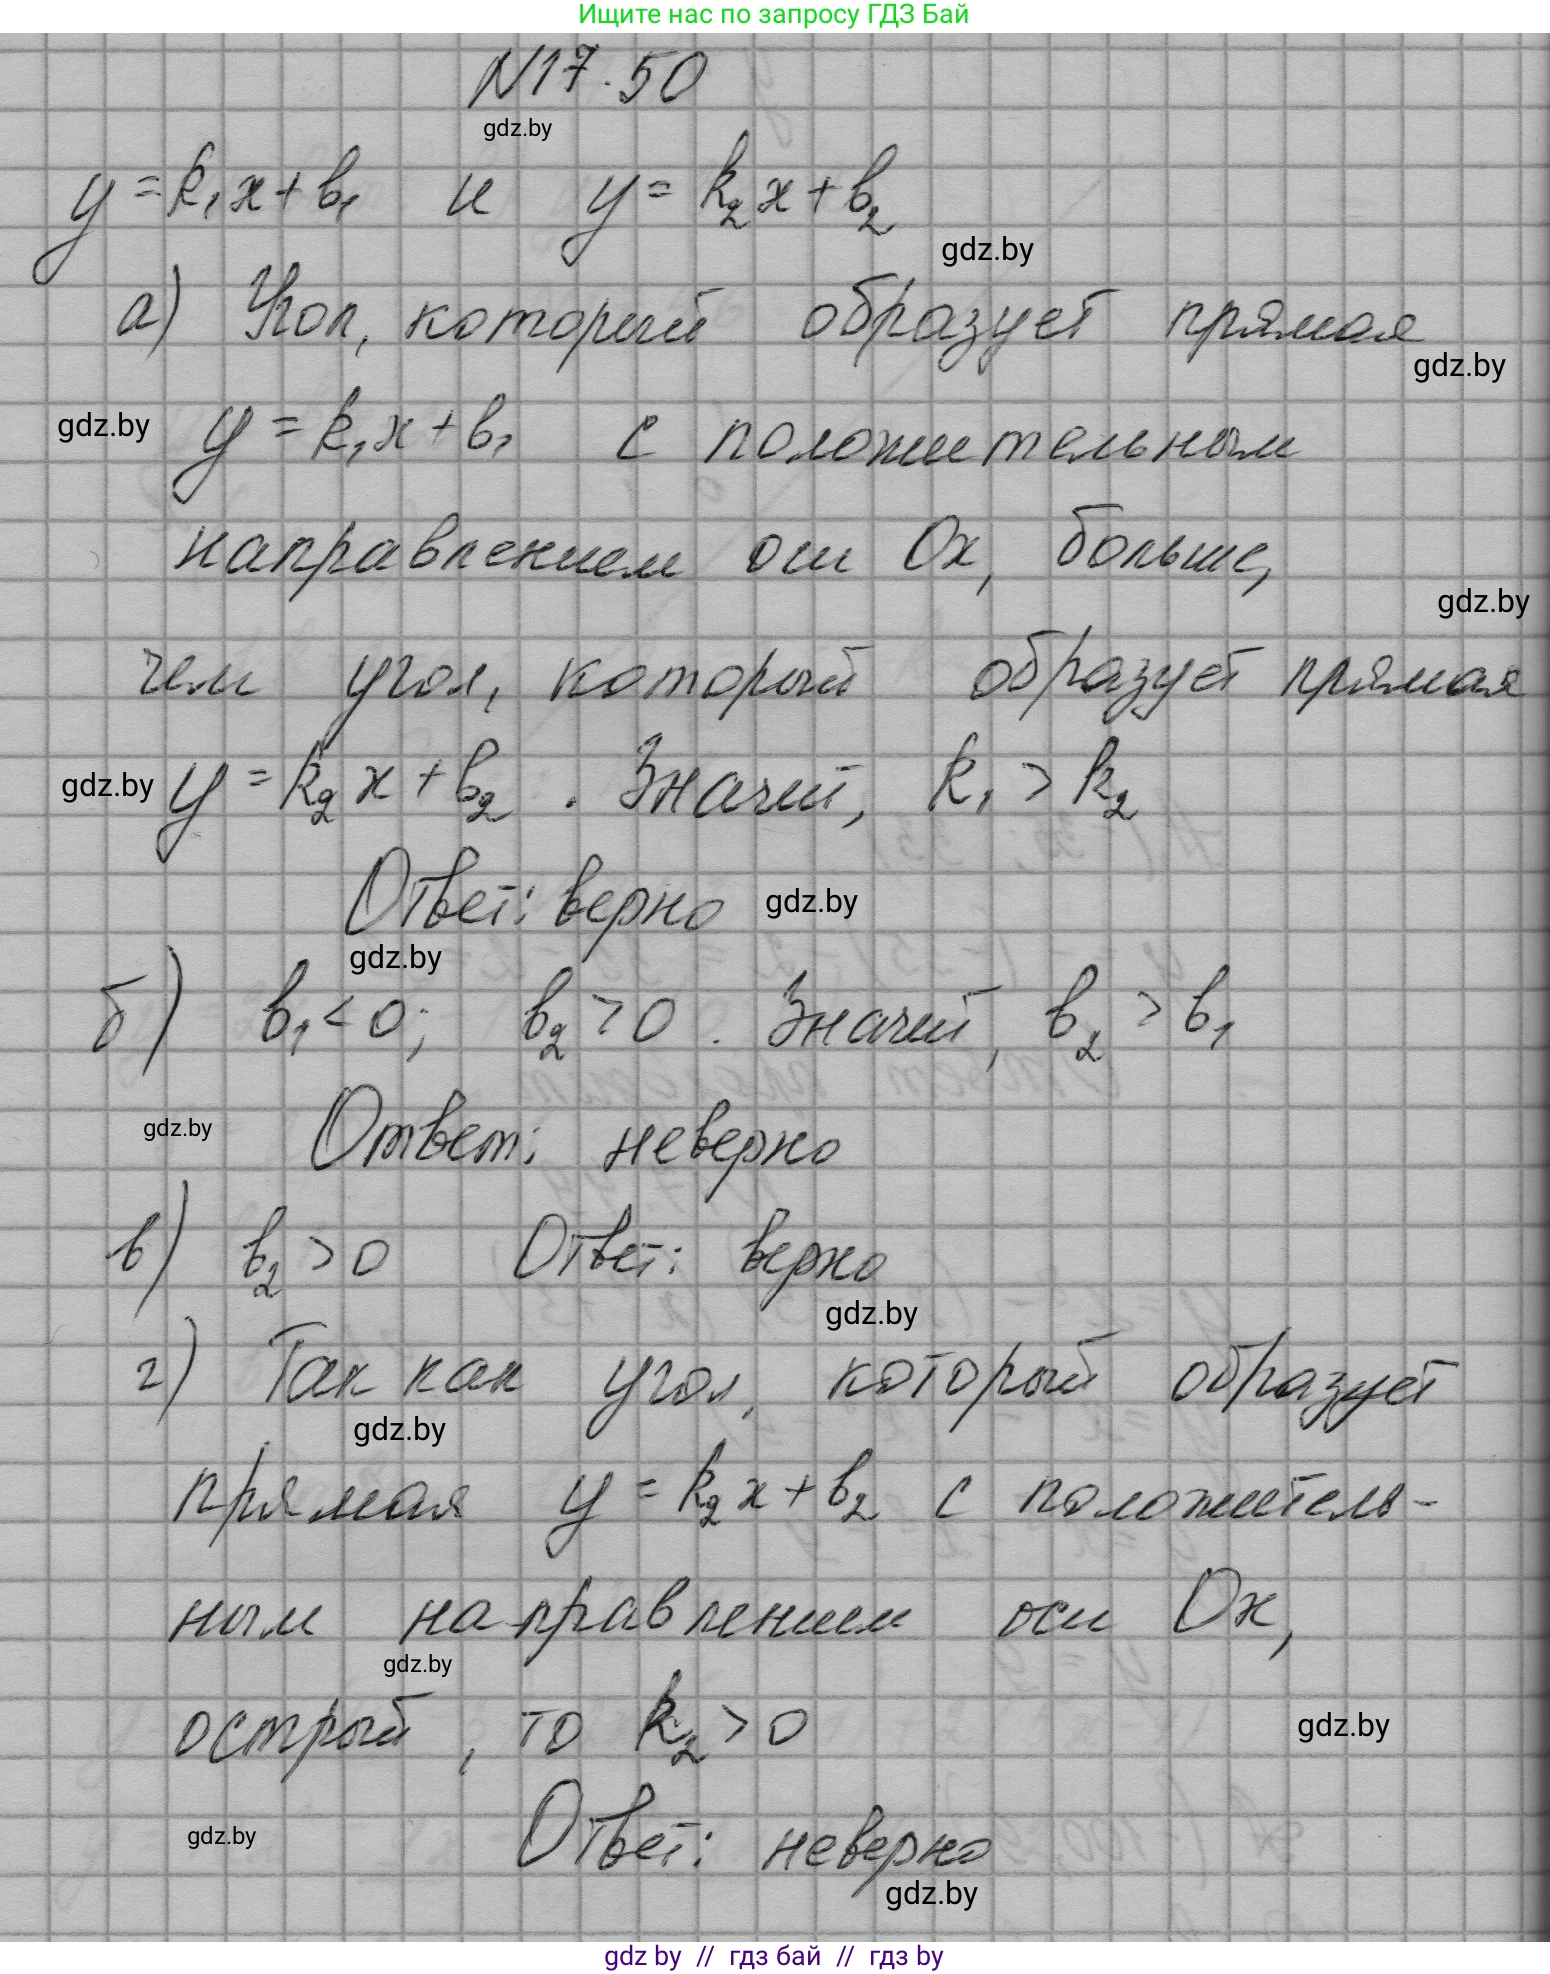 Ищите нас по запросу ГДЗ Бай
N17.50
gdz.by
y = k₁x + b₁ и y = k₂x + b₂
gdz.by
а) Угол, который образует прямая
gdz.by
gdz.by y = k₁x + b₁ с положительным
направлением оси Ox, больше,
gdz.by
чем угол, который образует прямая
gdz.by y = k₂x + b₂. Значит, k₁ > k₂
Ответ: верно gdz.by
gdz.by
б) b₁ < 0; b₂ > 0. Значит, b₂ > b₁
gdz.by Ответ: неверно
в) b₂ > 0 Ответ: верно
gdz.by
г) Так как угол, который образует
gdz.by
прямая y = k₂x + b₂ с положитель-
ным направлением оси Ox,
gdz.by
острый, то k₂ > 0 gdz.by
gdz.by Ответ: неверно
gdz.by
gdz by // гдз бай // гдз by